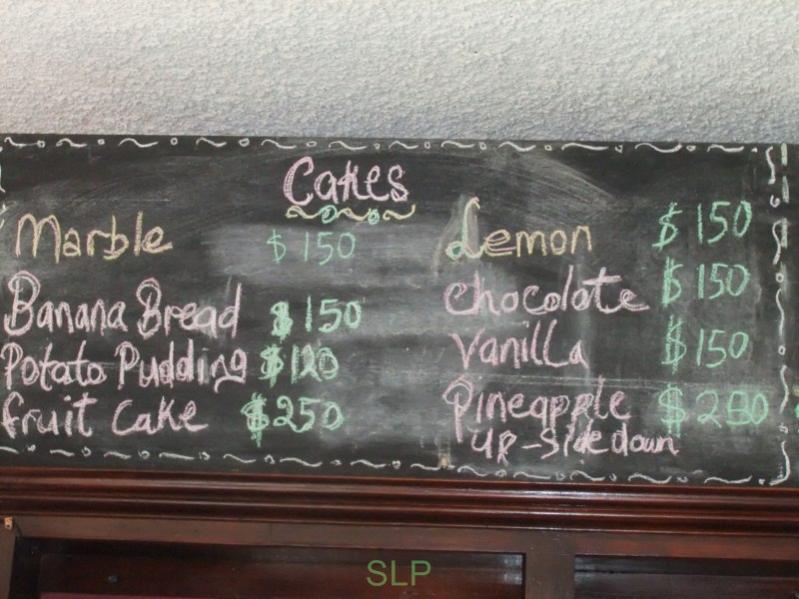 Cakes
Marble $150
Banana Bread $150
Potato Pudding $120
fruit cake $250
Lemon $150
chocolate $150
vanilla $150
Pineapple $250
up-side down
SLP